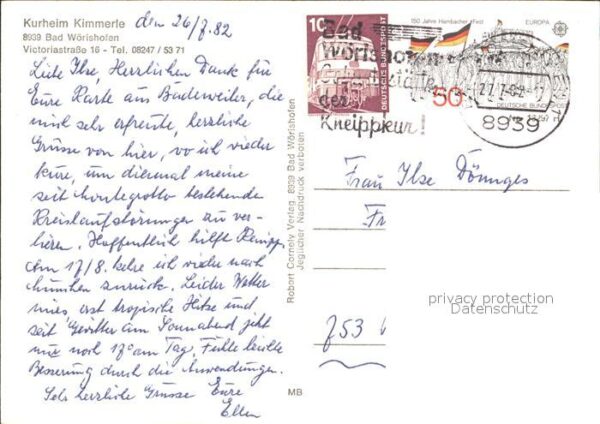 Kurheim Kimmerle
den 26/7.82
8939 Bad Wörishofen
Victoriastraße 16 - Tel. 08247 / 53 71
Liebe Ilse, Herzlichen Dank für
Eure Karte aus Badenweiler, die
mich sehr erfreute, herzliche
Grüsse von hier, wo ich wieder
kure, um diesmal meine
seit Montegrotto bestehende
Kreislaufstörungen zu ver-
lieren. Hoffentlich hilft Kneipp.
Am 17/8. kehre ich wieder nach
München zurück. Leider Wetter
mies, erst tropische Hitze und
seit Gewitter am Sonnabend jetzt
nur noch 17° am Tag. Fühle leichte
Besserung durch die Anwendungen.
Sehr herzliche Grüsse Eure
Ellen
Robort Cornely Verlag, 8939 Bad Wörishofen
Jeglicher Nachdruck verboten
MB
10
DEUTSCHE BUNDESPOST
150 Jahre Hambacher Fest
EUROPA
50
DEUTSCHE BUNDESPOST
Bad
Wörishofen
der
Kneippkur!
27.7.82-17
8939
Frau Ilse Dönnges
Fr
753
privacy protection
Datenschutz